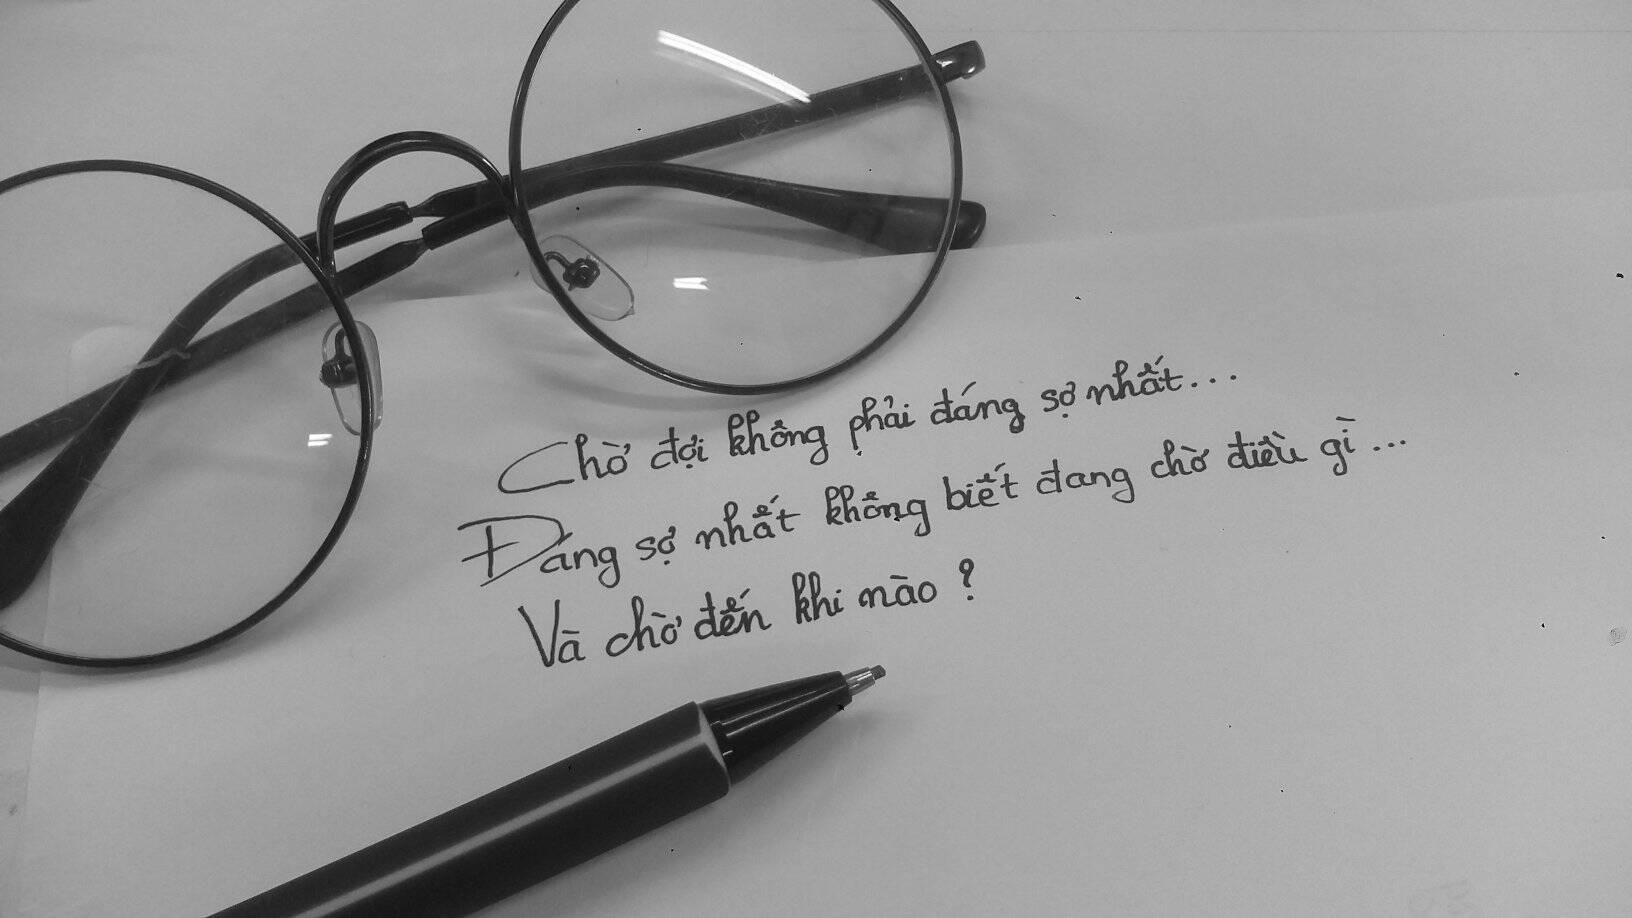 Chờ đợi không phải đáng sợ nhất...
Đáng sợ nhất không biết đang chờ điều gì...
Và chờ đến khi nào?